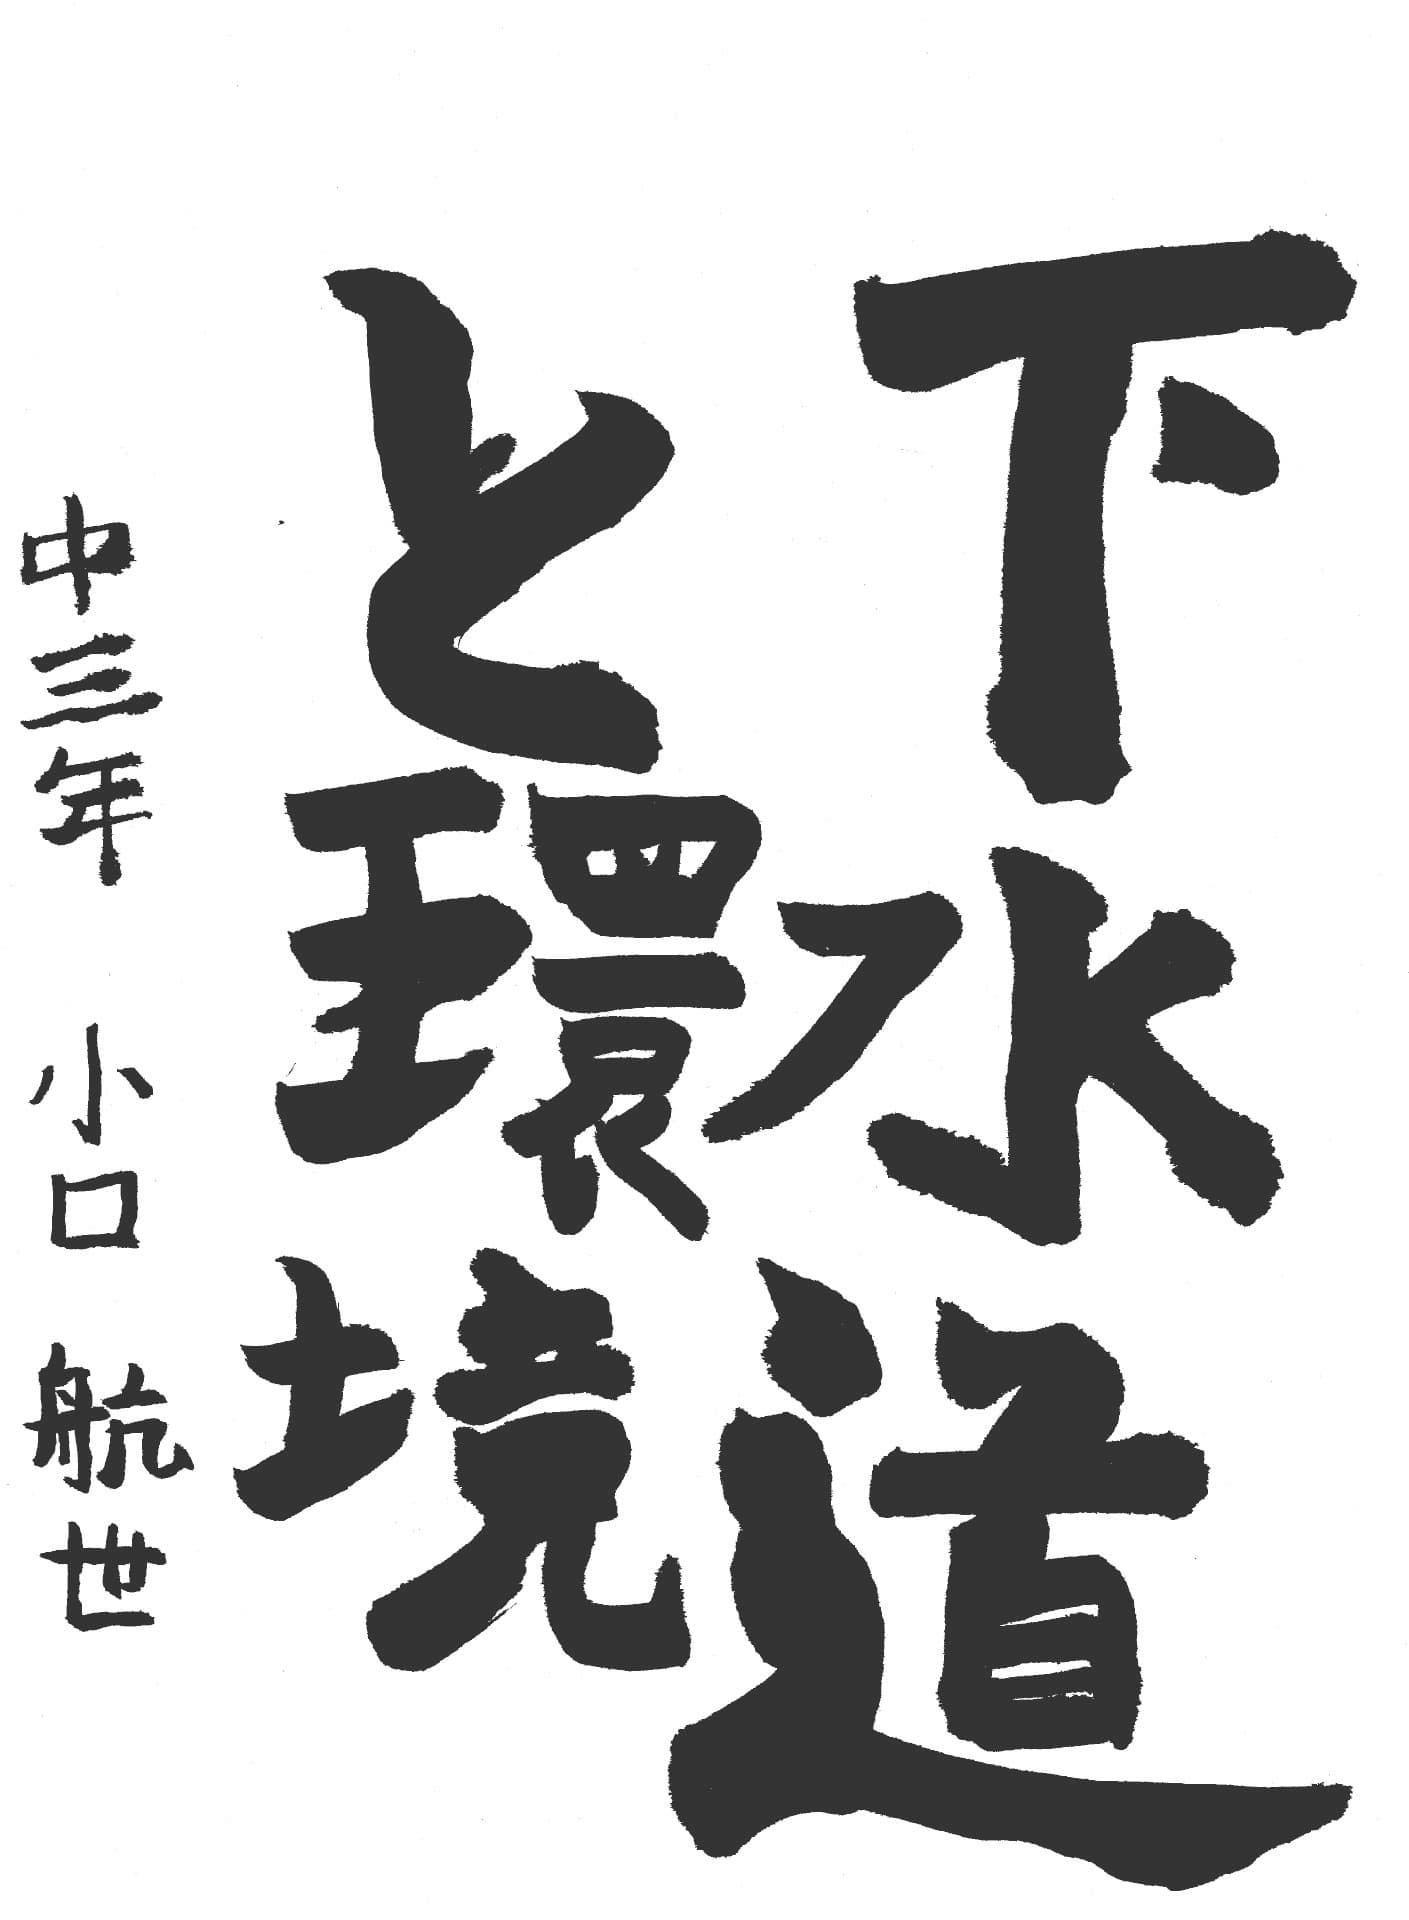 下水道
と環境
中三年 小口 航世